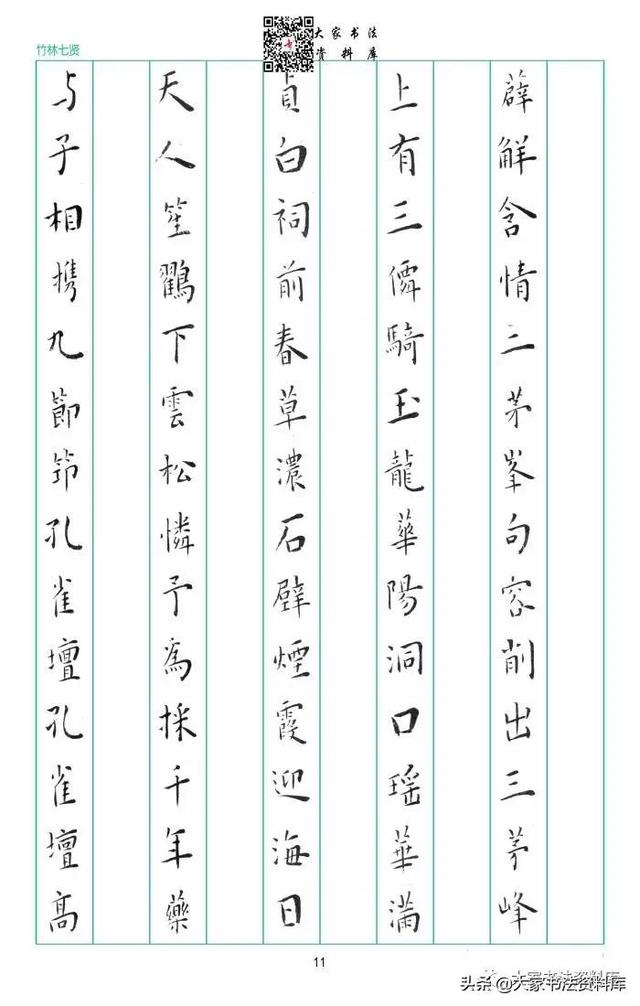 竹林七贤
大家书法
资料库
薜解含情三茅峯句容削出三茅峰
上有三僊騎玉龍華陽洞口瑶華滿
貞白祠前春草濃石壁煙霞迎海日
天人笙鸛下雲松憐予為採千年藥
与子相携九節筇孔雀壇孔雀壇高
11
大家书法资料库
头条 @大家书法资料库